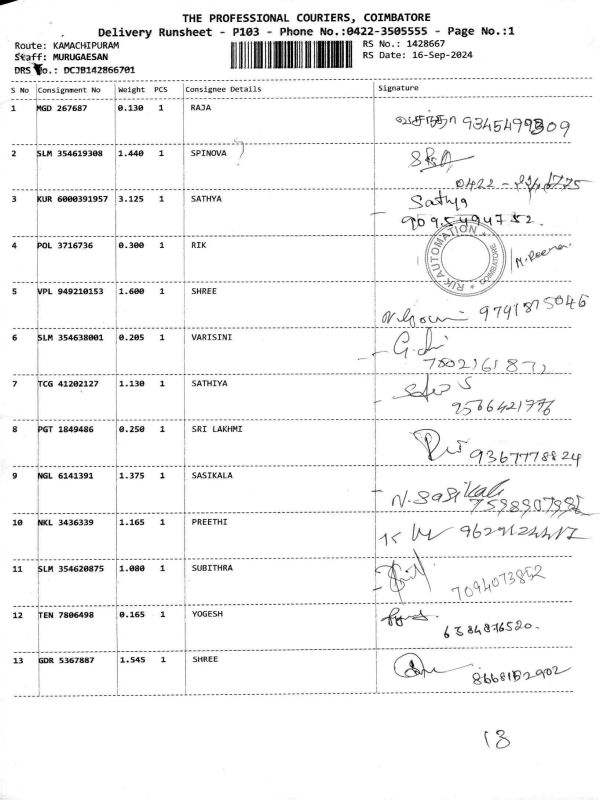 THE PROFESSIONAL COURIERS, COIMBATORE
Delivery Runsheet - P103 - Phone No.:0422-3505555 - Page No.:1
Route: KAMACHIPURAM RS No.: 1428667
Staff: MURUGAESAN RS Date: 16-Sep-2024
DRS No.: DCJB142866701
S No Consignment No Weight PCS Consignee Details Signature
1 MGD 267687 0.130 1 RAJA
வசந்தா
2 SLM 354619308 1.440 1 SPINOVA ?
3 KUR 6000391957 3.125 1 SATHYA Sathya
9095494752.
4 POL 3716736 0.300 1 RIK RIK AUTOMATION COIMBATORE
5 VPL 949210153 1.600 1 SHREE
9791875046
6 SLM 354638001 0.205 1 VARISINI
7 TCG 41202127 1.130 1 SATHIYA
9566421776
8 PGT 1849486 0.250 1 SRI LAKHMI
9367778824
9 NGL 6141391 1.375 1 SASIKALA N. Sasikala
10 NKL 3436339 1.165 1 PREETHI
11 SLM 354620875 1.080 1 SUBITHRA
7094073852
12 TEN 7806498 0.165 1 YOGESH
6384876520.
13 GDR 5367887 1.545 1 SHREE
13